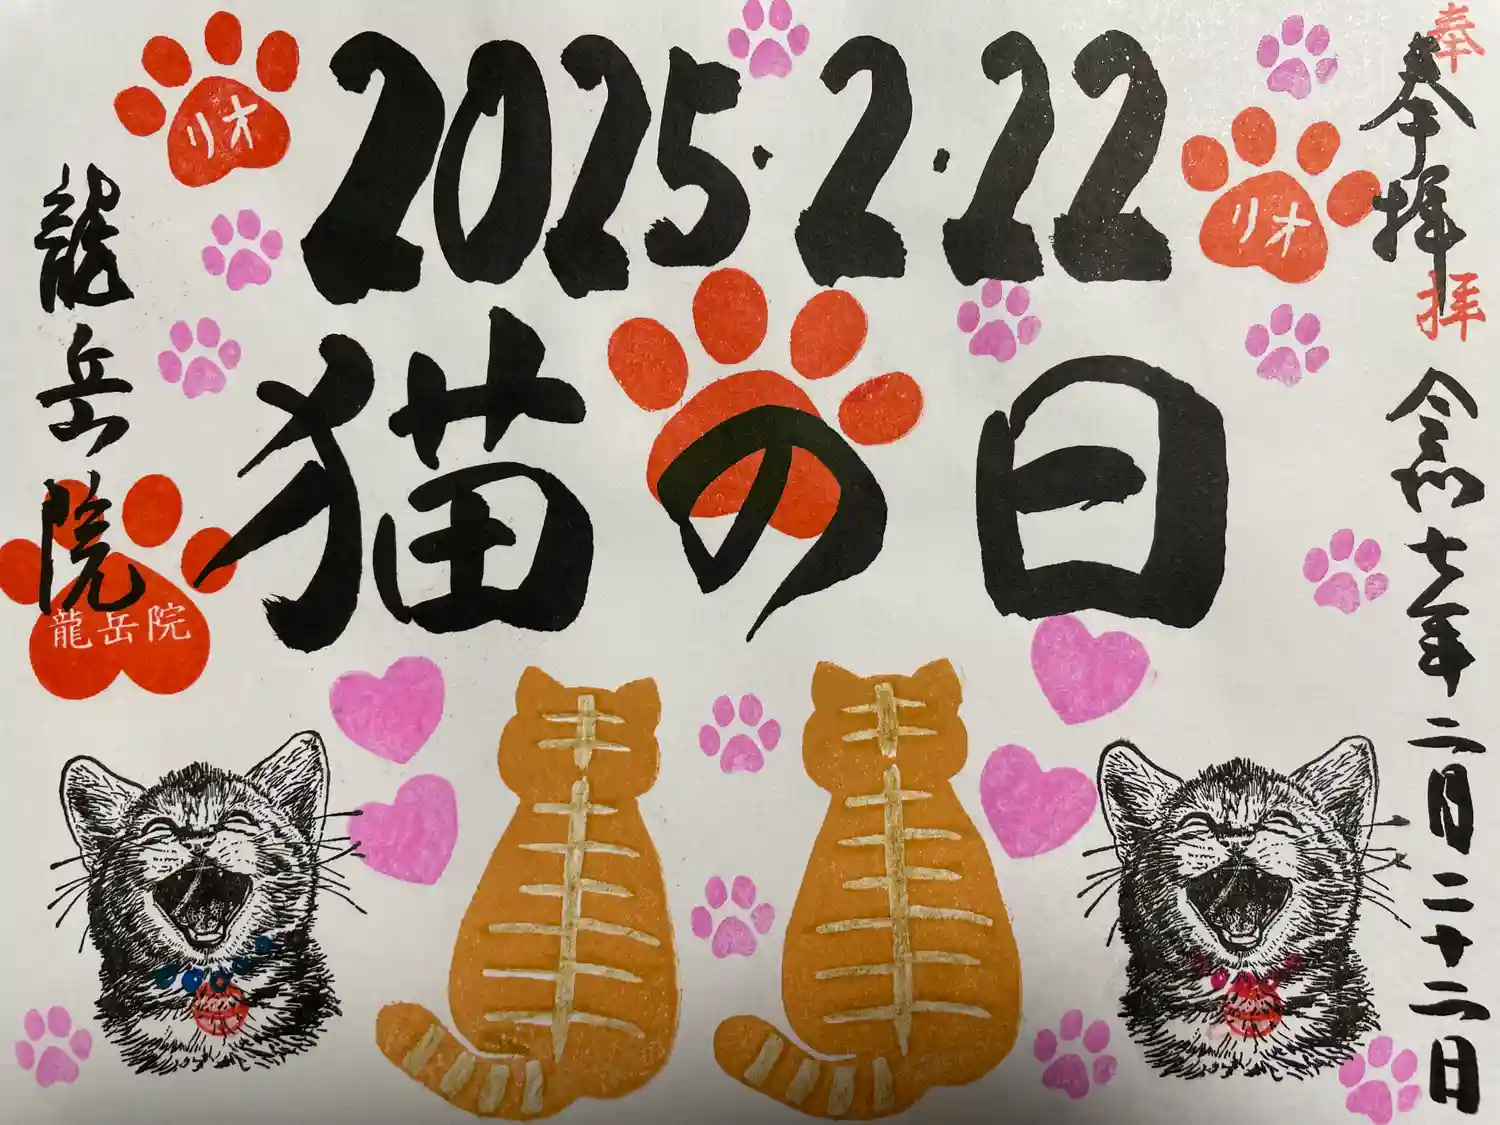 奉拝
奉
拝
令和七年二月二十二日
2025・2・22
猫の日
リオ
リオ
龍岳院
龍岳院